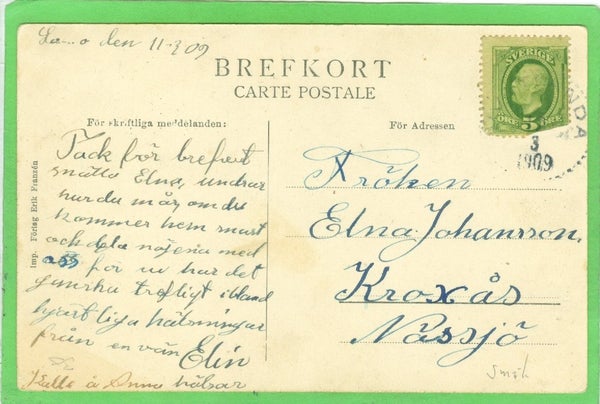 den 11-3 09
BREFKORT
CARTE POSTALE
SVERIGE
ÖRE 5 ÖRE
NDA
3
1909
För skriftliga meddelanden:
För Adressen
Tack för brefvet
snälla Elna, undrar
hur du mår, om du
kommer hem snart
och dela nöjena med
oss för vi har det
ganska trefligt ibland
hjärtliga hälsningar
från en vän Elin
Kalle å Anna hälsar
Fröken
Elna Johansson,
Kroxås
Nässjö
Smål
Imp. Förlag Erik Franzén